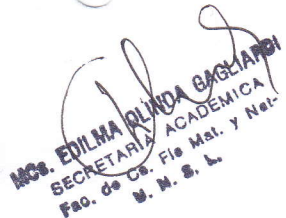 MCs. EDILMA OLINDA GAGLIARDI
SECRETARIA ACADEMICA
Fac. de Cs. Fís Mat. y Nat.
U. N. S. L.